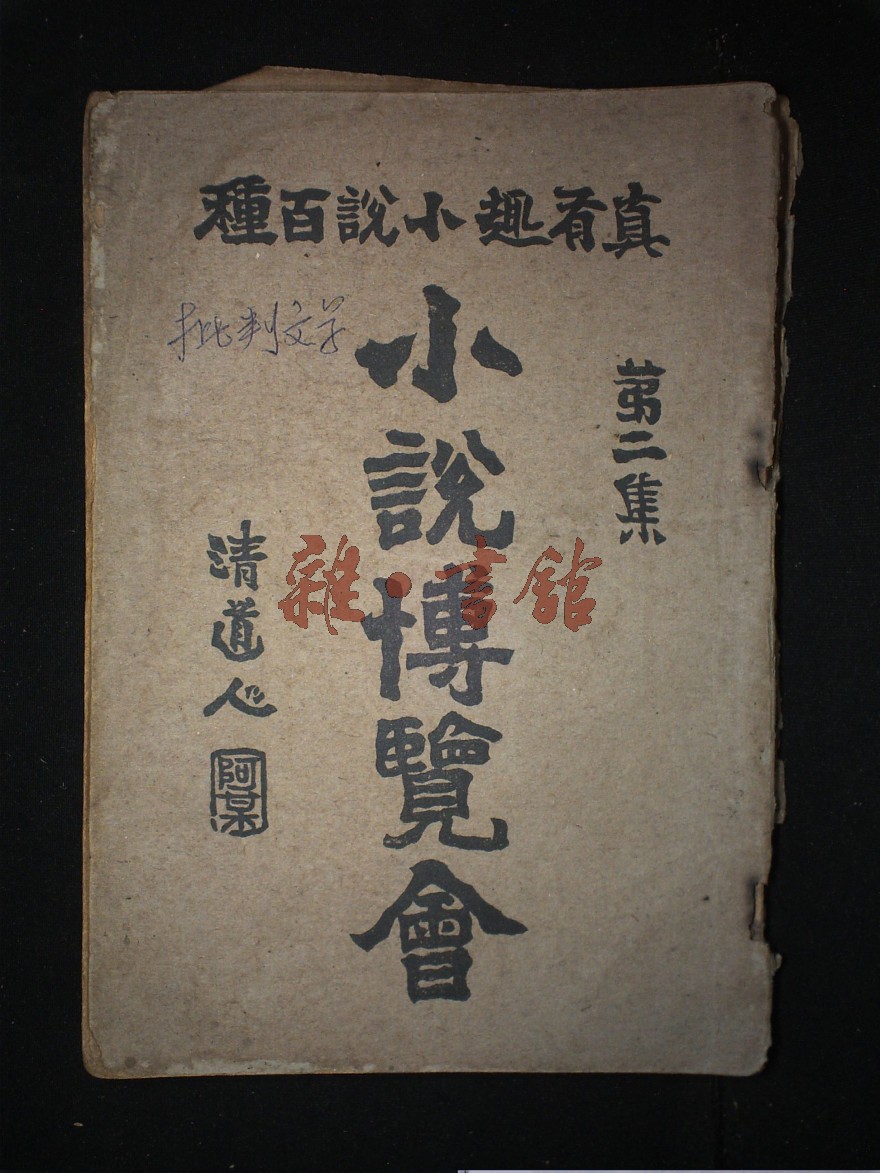 真有趣小說百種
第二集
小說博覽會
批判文学
清道人
阿某
雜·書館